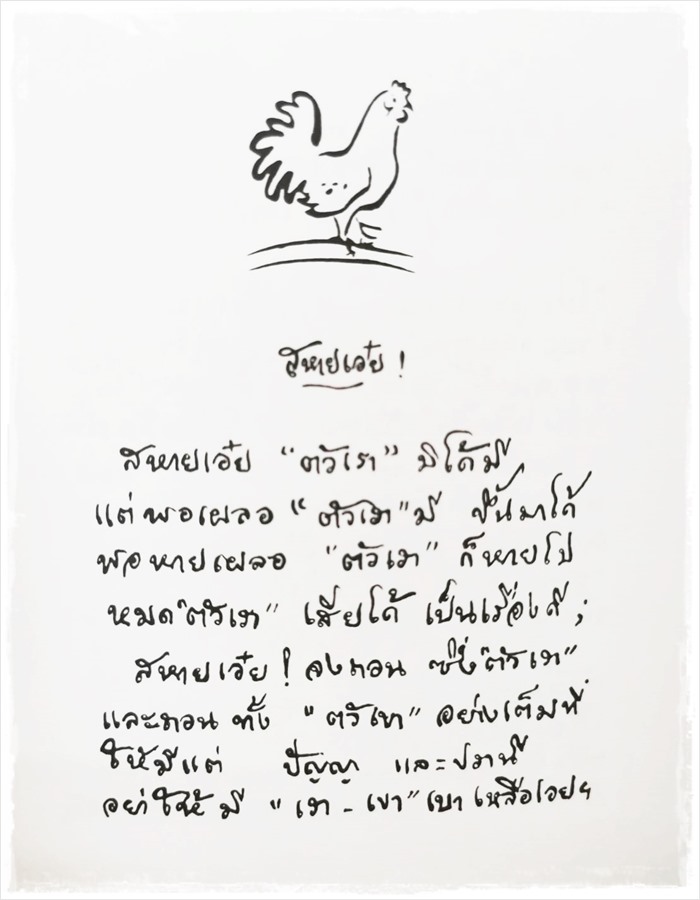 สหายเอ๋ย !
สหายเอ๋ย "ตัวเรา" มิได้มี
แต่พอเผลอ "ตัวเรา" มี ขึ้นมาได้
พอหายเผลอ "ตัวเรา" ก็หายไป
หมด "ตัวเรา" เสียได้ เป็นเรื่องดี ;
สหายเอ๋ย ! จงถอน ซึ่ง "ตัวเรา"
และถอน ทั้ง "ตัวเขา" อย่างเต็มที่
ให้มีแต่ ปัญญา และปรานี
อย่าให้ มี "เรา - เขา" เบา เหลือเอยฯ